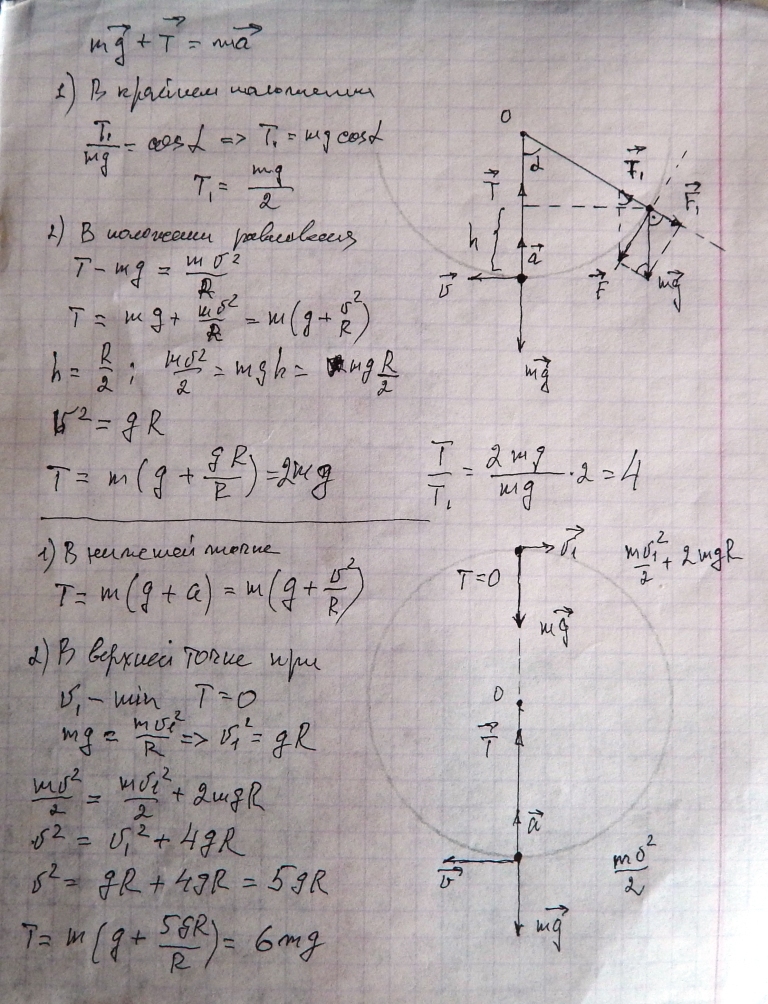 mg⃗ + T⃗ = ma⃗
1) В крайнем положении
T₁/mg = cosα => T₁ = mg cosα
T₁ = mg/2
2) В положении равновесия
T - mg = mσ²/R
T = mg + mσ²/R = m(g + σ²/R)
h = R/2 ; mσ²/2 = mgh = mg R/2
σ² = gR
T = m(g + gR/R) = 2mg
T/T₁ = 2mg/mg · 2 = 4
O
α
T⃗
T⃗₁
F⃗₁
h
a⃗
υ⃗
F⃗
mg⃗
mg⃗
1) В нижней точке
T = m(g + a) = m(g + σ²/R)
2) В верхней точке при
σ₁ - min T = 0
mg = mσ₁²/R => σ₁² = gR
mσ²/2 = mσ₁²/2 + 2mgR
σ² = σ₁² + 4gR
σ² = gR + 4gR = 5gR
T = m(g + 5gR/R) = 6mg
σ⃗₁
mσ₁²/2 + 2mgR
T=0
mg⃗
O
T⃗
a⃗
υ⃗
mσ²/2
mg⃗